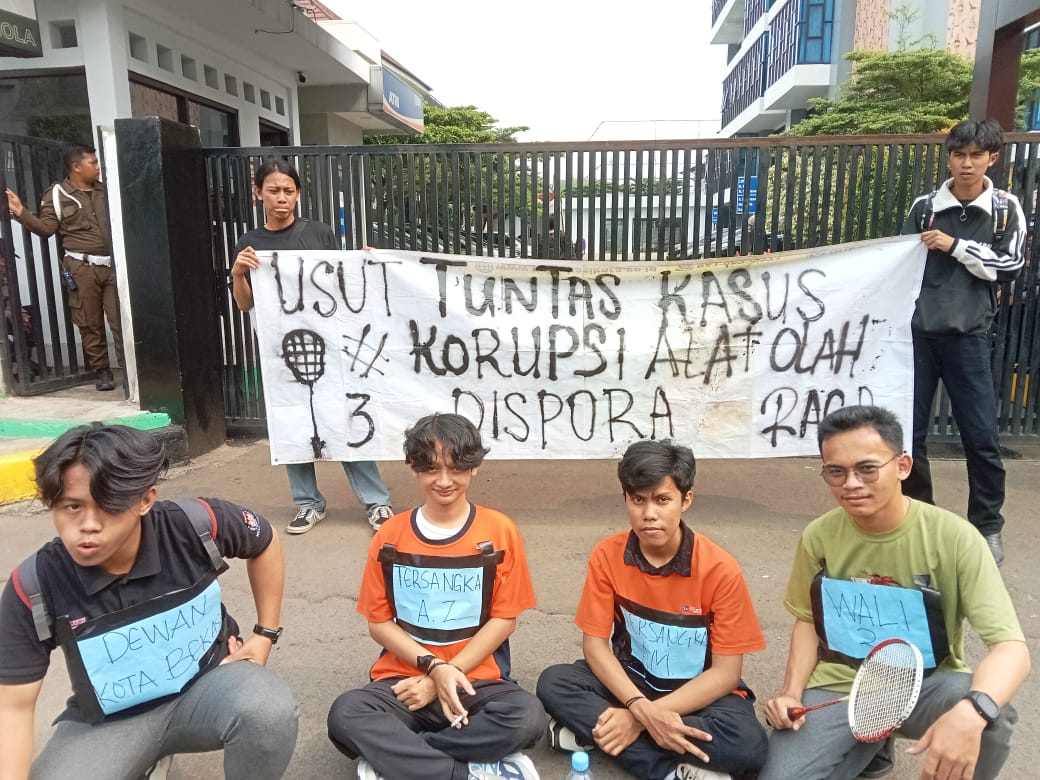 ATM
USUT TUNTAS KASUS
KORUPSI ALAT OLAH
3 DISPORA RAGA
DEWAN
KOTA
TERSANGKA
A.Z
TERSANGKA
M
WALI
2